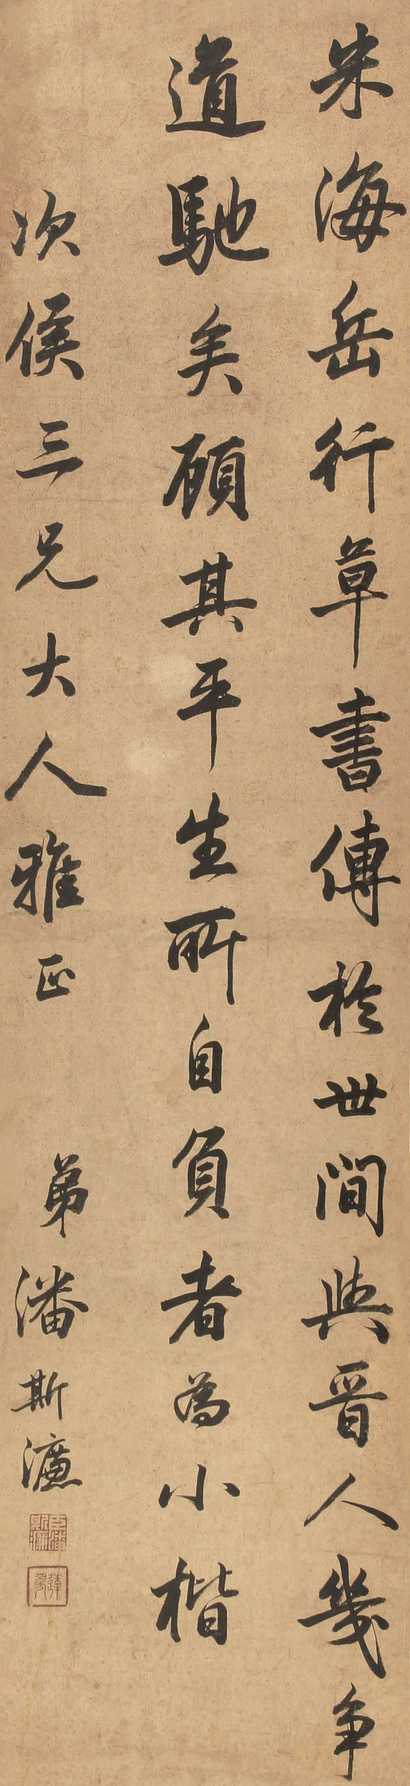 米海岳行草書傳於世間與晉人幾爭
道馳矣顧其平生所自負者為小楷
次侯三兄大人雅正 弟潘斯濂